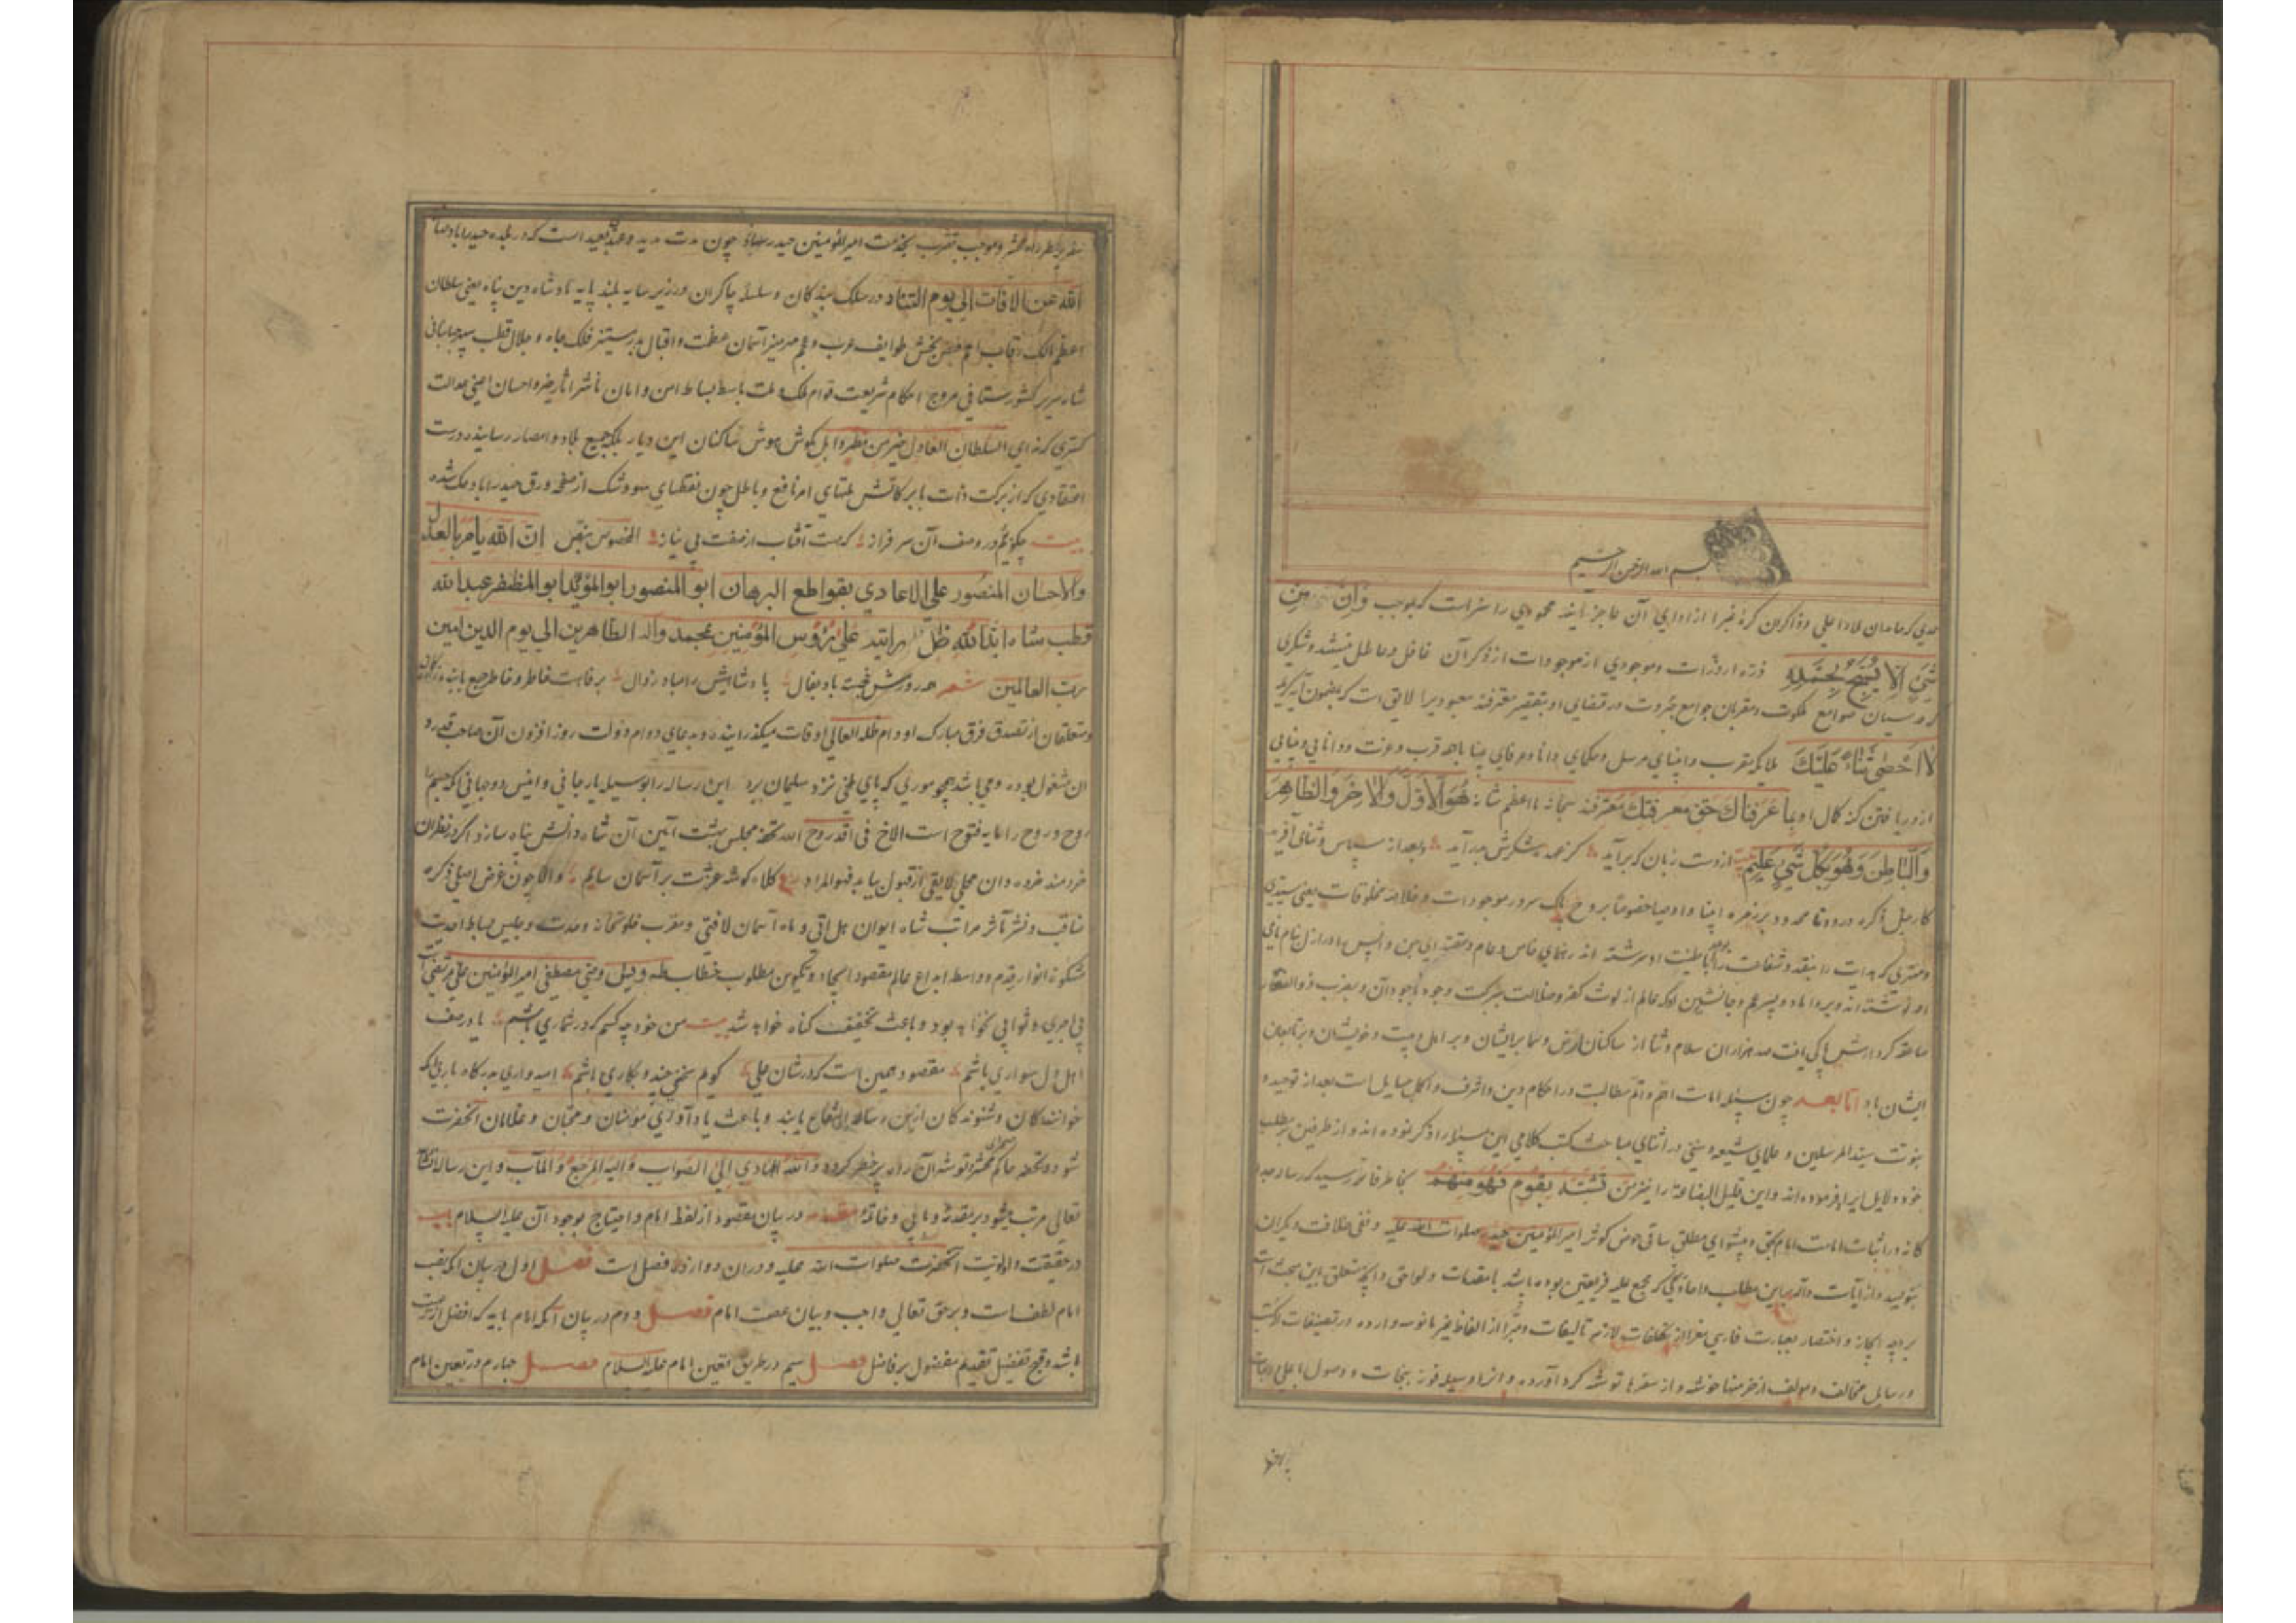 بسم الله الرحمن الرحيم
حمدي که حامدان ملاء اعلي وذاکران کرهٔ غبرا از اداي آن عاجز آيند محمودي را سزاست که بموجب وَاِنْ مِن
شَيْءٍ اِلّا يُسَبِّحُ بِحَمْدِهِ ذرّه از ذرّات وموجودي از موجودات از ذکر آن غافل وعاطل نيستند وشکري
که سبحان صوامع ملکوت ومقربان جوامع جبروت در قضاي او بتقصير معترفند معبوديرا لايق است که بمضمون آيه کريمه
لا اُحْصِي ثَناءً عَلَيْكَ ملائکه مقرب وانبياي مرسل وحکماي دانا وعرفاي بينا باهمه قرب وعزت ودانايي وبينايي
از دريافتن کنه کمال او بما عَرَفناكَ حَقّ مَعرِفَتِكَ معترفند سبحانه ما اعظم شانه هُوَ الاَوّلُ وَالآخِرُ وَالظّاهِرُ
وَالْباطِنُ وَهُوَ بِكُلِّ شَيْءٍ عَليم از دست زبان که برآيد کز عهده شکرش بدرآيد وبعد از سپاس وثناي آفريد
کار جل ذکره درود نامحدود بر زمره انبيا واوصيا خصوصا بر روح پاک سرور موجودات وخلاصه مخلوقات يعني سيدي
ومهتري که هدايت را بنقد وشفاعت را با طينت او سرشته اند رهنماي خاص وعام ومقتداي پيشين واپسين در ازل بنام نامي
او نوشته اند وبر داماد وپسر عم وجانشين او که عالم از لوث کفر وضلالت ببرکت وجود باجود آن وبضرب ذوالفقار
صاعقه کردارش پاکي يافت صد هزاران سلام وثنا از ساکنان ارض وسما بر ايشان وبر اهل بيت وخويشان وبر تابعان
ايشان باد امّا بعد چون مسئله امامت اهم واتم مطالبست در احکام دين واشرف واکمل مسايل است بعد از توحيد و
نبوت سيد المرسلين وعلماي شيعه وسني در اثناي مباحث کتب کلامي اين مسئله را ذکر نموده اند واز طرفين بر مطلب
خود دلايل ايراد فرموده اند واين قليل البضاعة را نيز من تشبّه بقوم فهو منهم بخاطر فاتر رسيد که رساله جدا
کانه در اثبات امامت امام بحق وپيشواي مطلق ساقي حوض کوثر امير المؤمنين حيدر صلوات الله عليه ونفي خلافت ديکران
بنويسد واز آيات داله براين مطالب واحاديثي که مجمع عليه فريقين بوده باشد با مقدمات ولواحق وانچه متعلق باين مبحث است
بر وجه ايجاز واختصار بعبارت فارسي معرا از تکلفات لازم تاليفات ومبرّا از الفاظ غير مانوسه وارده در تصنيفات وکتب
ورسايل مخالف ومؤلف از هر خرمنها خوشه واز سفرها توشه کرد آورده وانرا وسيله فوز بنجات ووصول باعلي درجات
سفر پر خطر راه محشر وموجب تقرب بخدمت امير المؤمنين حيدر سازد چون مدت مديد وعهد بعيد است که در بلده حيدراباد صانها
الله عن الافات الي يوم التناد در سلک بندکان وسلسله چاکران ودر زير سايه بلند پايه پادشاه دين پناه يعني سلطان
اعظم مالک رقاب امم فيض بخش طوايف عرب وعجم مهر منير آسمان عظمت واقبال بدر مستنير فلک جاه وجلال قطب سپهر جهانباني
شاه سرير کشورستاني مروج احکام شريعت قوام ملک وملت باسط بساط امن وامان ناشر اثار خير واحسان اعني عدالت
کستري که نداي السلطان العادل خير من مطر وابل بکوش هوش ساکنان اين ديار بلکه جميع بلاد وامصار رسانيده درست
اعتقادي که از برکت ذات بابرکاتش بمقتضاي امر نافع وباطل چون نقطهاي سهو وشک از صفحه ورق حيدراباد حک شده
بيت چکويم در وصف آن سرفراز که هست آفتاب از صفت بي نياز المخصوص بنص ان الله يامر بالعدل
والاحسان المنصور علي الاعادي بقواطع البرهان ابو المنصور ابو المؤيد ابو المظفر عبد الله
قطب شاه ايد الله ظل على رؤوس المؤمنين بمحمد واله الطاهرين الي يوم الدين امين
رب العالمين شعر هر روزش خجسته باد بفال پادشاهيش را مباد زوال برفاهت خاطر وخاطر جمع بابنده زادکان
ومتعلقان از تصدق فرق مبارک او دام ظله العالي اوقات ميکذرانيده وبدعاي دوام دولت روز افزون آن صاحب قدرد
ان مشغول بوده ومي باشد همچو موري که پاي ملخي نزد سليمان برد اين رساله را بوسيله يار جاني وانيس دو جهاني که جسم را
روح وروح را مايه فتوح است الاخ في الله تحفه مجلس بهشت آيين آن شاه دانش پناه سازد اکر در نظر آن
خردمند خرده دان محلي لايق از قبول بيابد فهو المراد ع کلاه کوشه عزت بر آسمان سايم والا چون غرض اصلي ذکر م
ناقب ونشر مآثر مراتب شاه ايوان هل اتي وماه آسمان لافتي ومقرب خلوتخانه وحدت وجليس بساط احديت
مشکوة انوار قدم وواسطه ابداع عالم مقصود ايجاد وتکوين مطلوب خطاب طه ويس وصي مصطفي امير المؤمنين علي مرتضي است
بي اجري وثوابي نخواهد بود وباعث تخفيف کناه خواهد شد بيت من خود چه کسم که در شماري باشم يا در صف
اهل دل سواري باشم مقصود همين است که در شان علي کويم سخني چند وبکاري باشم اميدواري بدرکاه باري که
خوانندکان وشنوندکان ازين رساله انتفاع يابند وباعث يادآوري مؤمنان ومحبان وغلامان آنحضرت
شود وتحفه حاکم محشر وتوشه آن راه پر خطر کردد والله الهادي الي الصواب واليه المرجع والمآب واين رساله انشاء
تعالي مرتب ميشود بر مقدمه وبابي وخاتمه مقدمه در بيان مقصود از لفظ امام واحتياج بوجود آن عليه السلام باب
در حقيقت واولويت آنحضرت صلوات الله عليه ودران دوازده فصل است فصل اول در بيان آنکه نصب
امام لطفست وبر حق تعالي واجب وبيان عصمت امام فصل دوم در بيان آنکه امام بايد که افضل از رعيت
باشد وقبح تفضيل تقديم مفضول بر فاضل فصل سيم در طريق تعيين امام عليه السلام فصل چهارم در تعيين امام